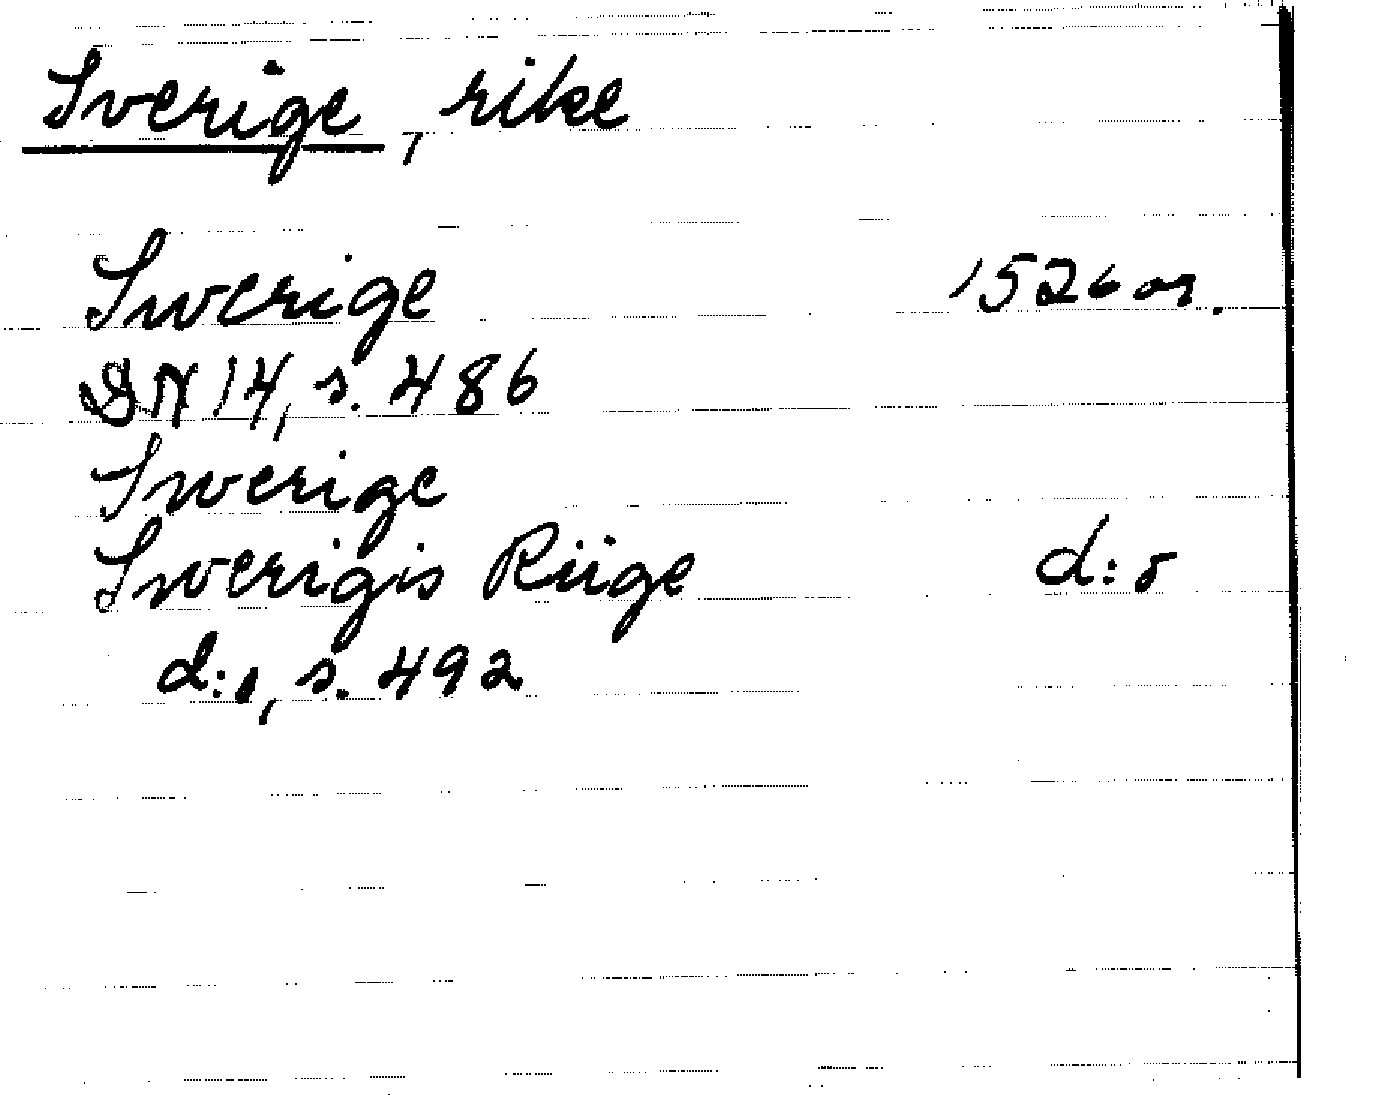 Sverige, rike
Swerige 1526 or.
DN 14, s. 486
Swerige
Swerigis Riige d:o
d:o, s. 492